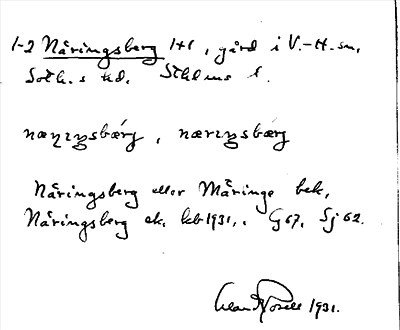 1-2 Näringsberg 1+1, gård i V.-H. sn,
Soth. s hd. Sthlms l.
næɳɪŋsbærg, nærɪŋsbærg
Näringsberg eller Märinge bek,
Näringsberg ek. kb 1931,. G 67. Sj 62.
1931.